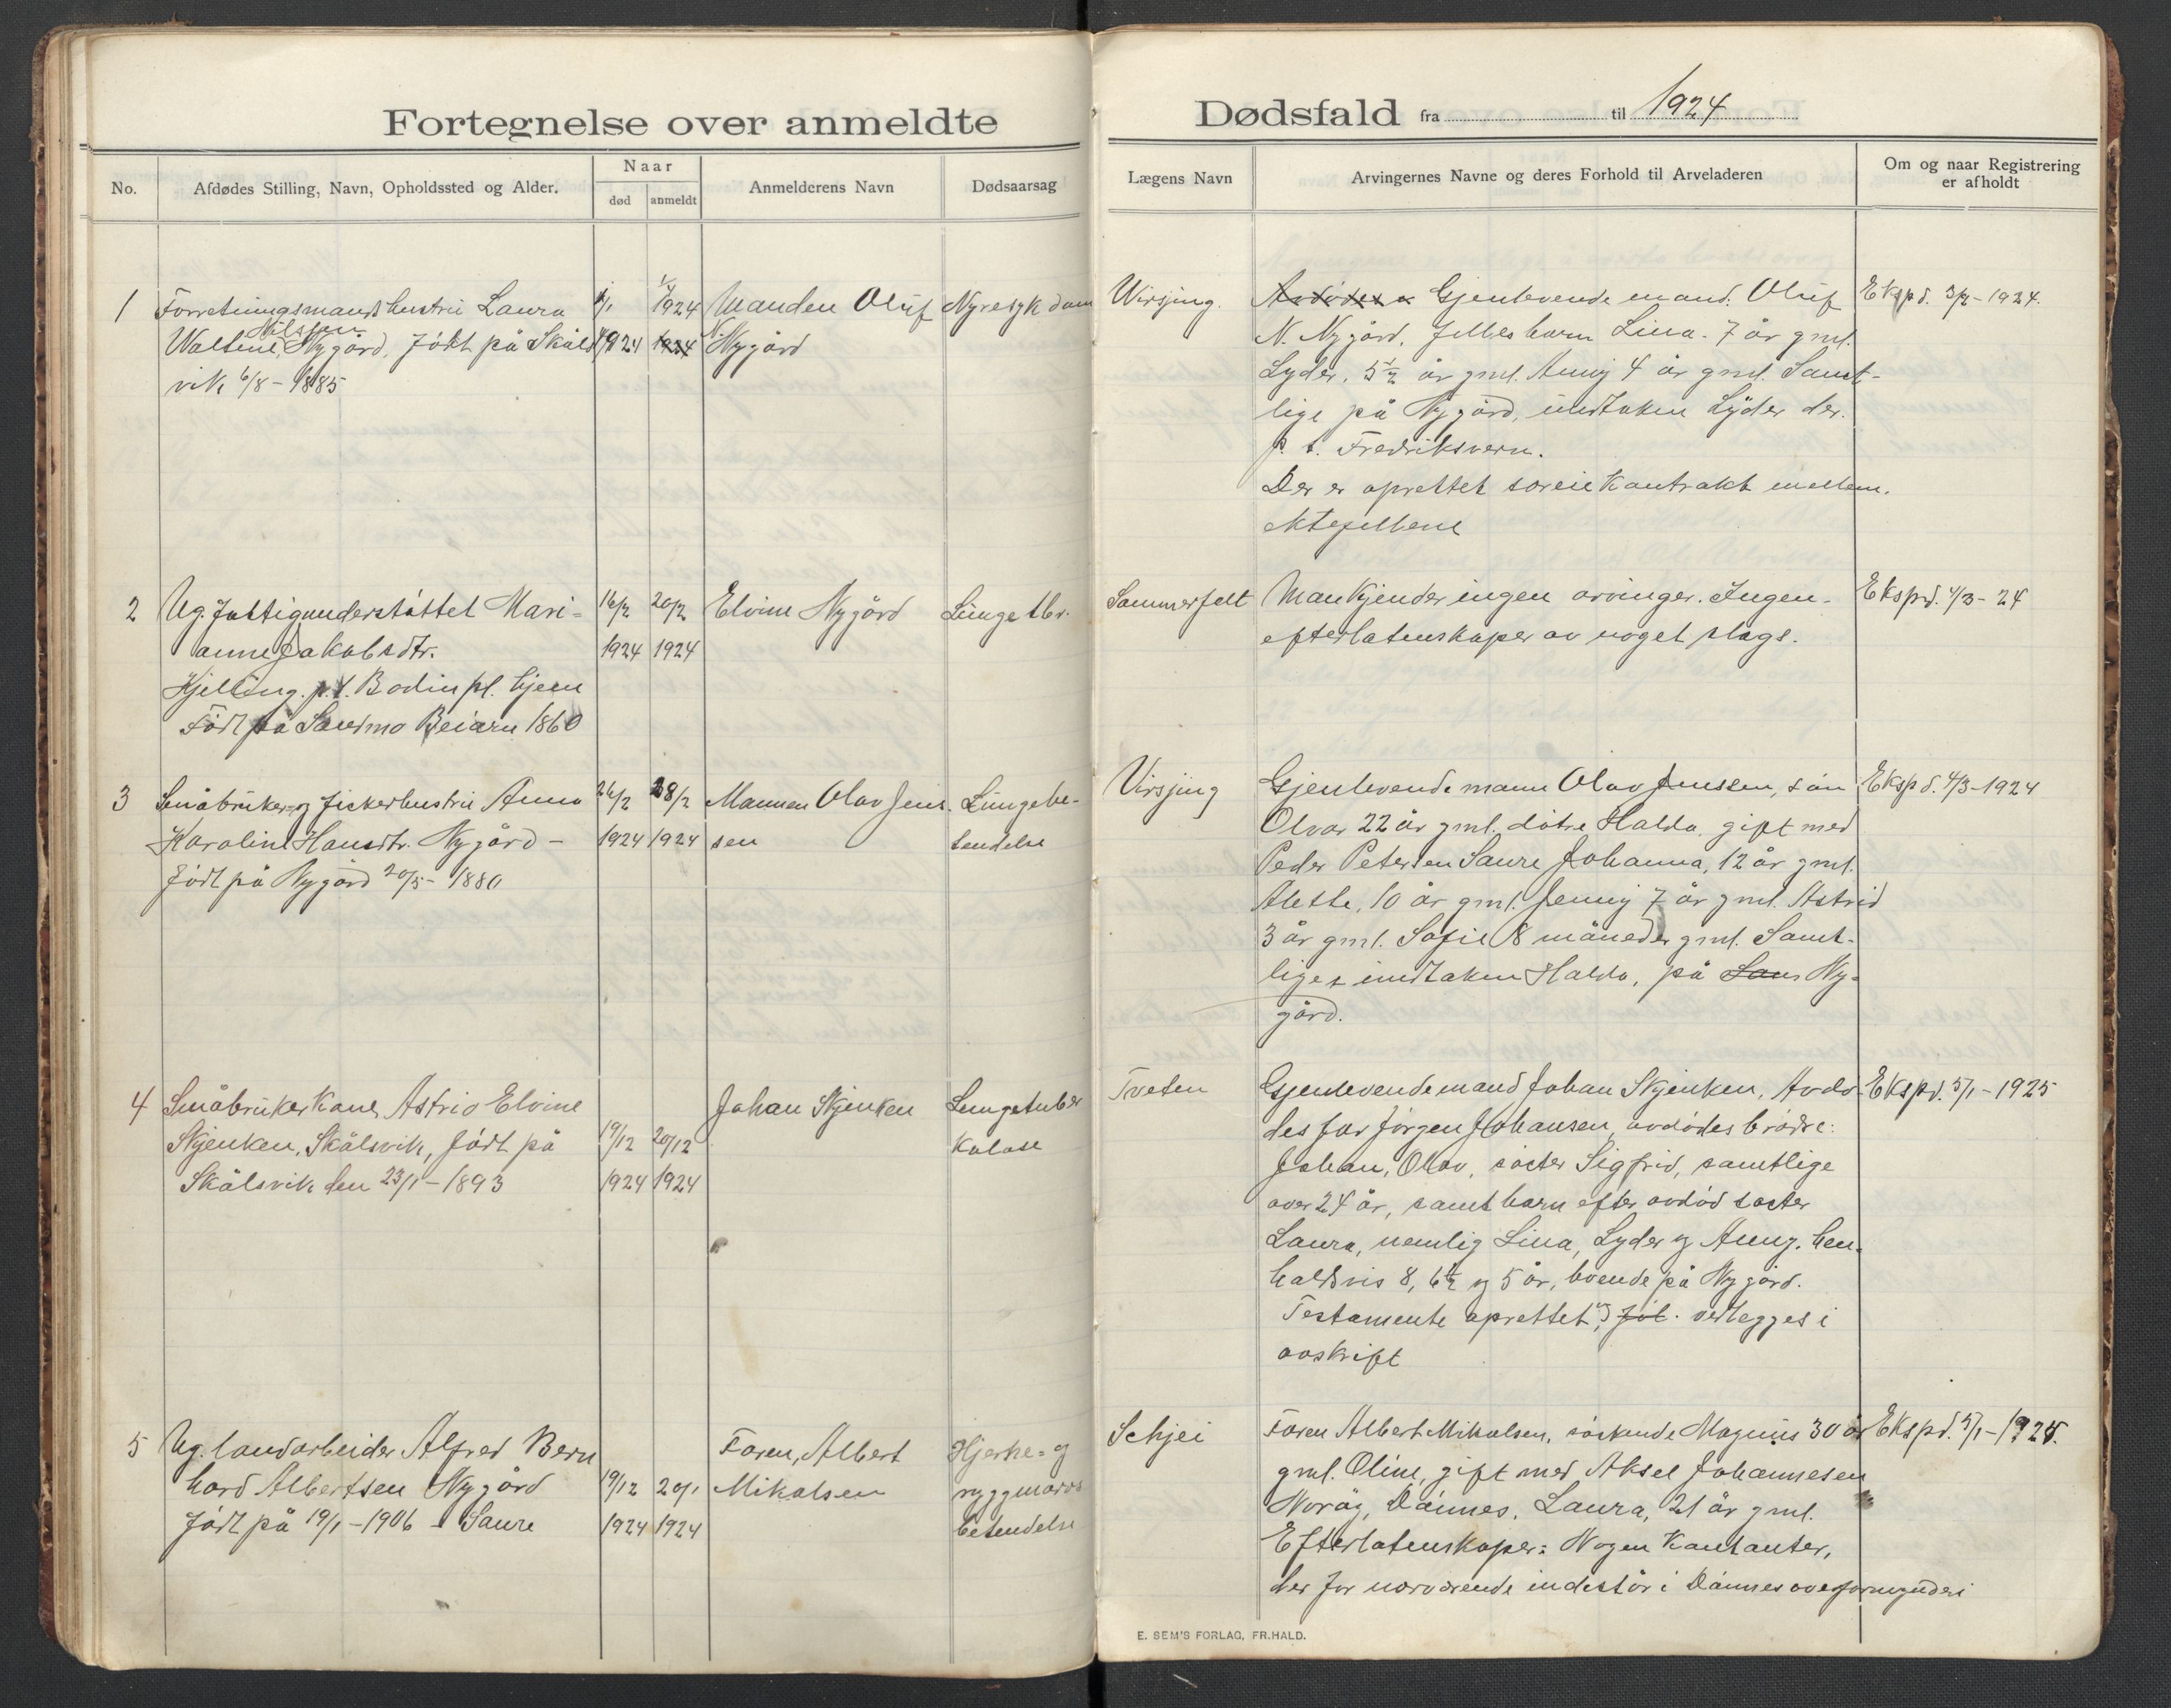 Fortegnelse over anmeldte
No.
Afdødes Stilling, Navn, Opholdssted og Alder.
Naar
død
anmeldt
Anmelderens Navn
Dødsaarsag
1
Forretningsmands hustru Laura
Nilsson
Waltine, Nygård, født på Skåls
vik 6/8 - 1885
1924
1924
Manden Oluf
Nygård
Nyresykdom
2
Ug. Fattigunderstøttet Mari=
anne Jakobsdtr.
Kjelling. p.t. Bodin pl. hjem
Født på Sandmo Beiarn 1860
16/2
1924
20/2
1924
Elvine Nygård
Lungetbr.
3
Småbruker= og fiskerhustru Anna
Karoline Hansdtr. Nygård -
født på Nygård 20/5 - 1880
26/2
1924
28/2
1924
Mannen Olav Jens
sen
Lungebe-
tendelse
4
Småbrukerkone Astrid Elvine
Skjenken, Skålsvik, født på
Skålsvik den 23/1 - 1893
19/12
1924
20/12
1924
Johan Skjenken
Lungetuber
kulose
5
Ug. landarbeider Alfred Bern
hard Albertsen Nygård
født på 19/1 - 1906 - Saure
19/12
1924
20/1
1924
Faren, Albert
Mikalsen
Hjerne= og
ryggmarvs
betendelse
Dødsfald fra til 1924
Lægens Navn
Arvingernes Navne og deres Forhold til Arveladeren
Om og naar Registrering
er afholdt
Wirsjing.
Gjenlevende mand. Oluf
N. Nygård. Fellesbarn Lina. 7 år gml.
Lyder, 5½ år gml. Anny 4 år gml. Samt-
lige på Nygård, undtaken Lyder der.
p. t. Fredriksvern.
Der er oprettet særeiekontrakt mellem.
ektefellene
Ekspd. 3/2 - 1924.
Sommerfelt
Man kjender ingen arvinger. Ingen-
efterlatenskaper av noget slags.
Ekspd. 4/3 - 24
Virsjing
Gjenlevende mann Olav Jenssen, søn
Olvar 22 år gml. døtre Halda, gift med
Peder Petersen Saure Johanna, 12 år gml.
Alette, 10 år gml. Jenny 7 år gml. Astrid
3 år gml. Sofie 8 måneder gml. Samt-
lige, undtaken Halda, på Sau Ny-
gård.
Ekspd. 4/3 - 1924
Tveten
Gjenlevende mand Johan Skjenken, Avdø-
des far Jørgen Johansen, avdødes brødre:
Johan, Olav, søster Sigfrid, samtlige
over 24 år, samt barn efter avdød søster
Laura, nemlig Lina, Lyder og Anny. hen-
holdsvis 8, 6½ og 5 år, boende på Nygård.
Testamente oprettet og føl. vedlegges i
avskrift
Ekspd. 5/1 - 1925
Schjei
Faren Albert Mikalsen, søskende Magnus 30 år
gml. Oline, gift med Aksel Johannesen
Norøy, Dønnes, Laura, 21 år gml.
Efterlatenskaper: Nogen Kontanter,
der for nærværende indestår i Dønnes overformynderi
Ekspd. 5/1 - 1925.
E. SEM'S FORLAG, FR.HALD.